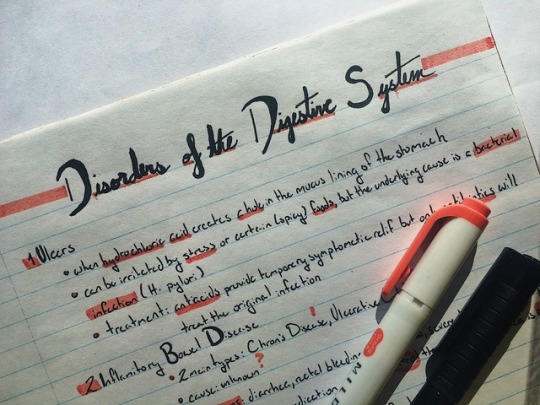 Disorders of the Digestive System
1 Ulcers
• when hydrochloric acid creates a hole in the mucus lining of the stomach
• can be irritated by stress or certain (spicy) foods, but the underlying cause is a bacterial
infection (H. pylori)
• treatment: antacids provide temporary symptomatic relif but only antibiotics will
treat the original infection
2 Inflamitory Bowel Disease
• 2 main types: Chron's Disease, Ulcerative
• cause: unknown?
diarrhea, rectal bleeding
MILD